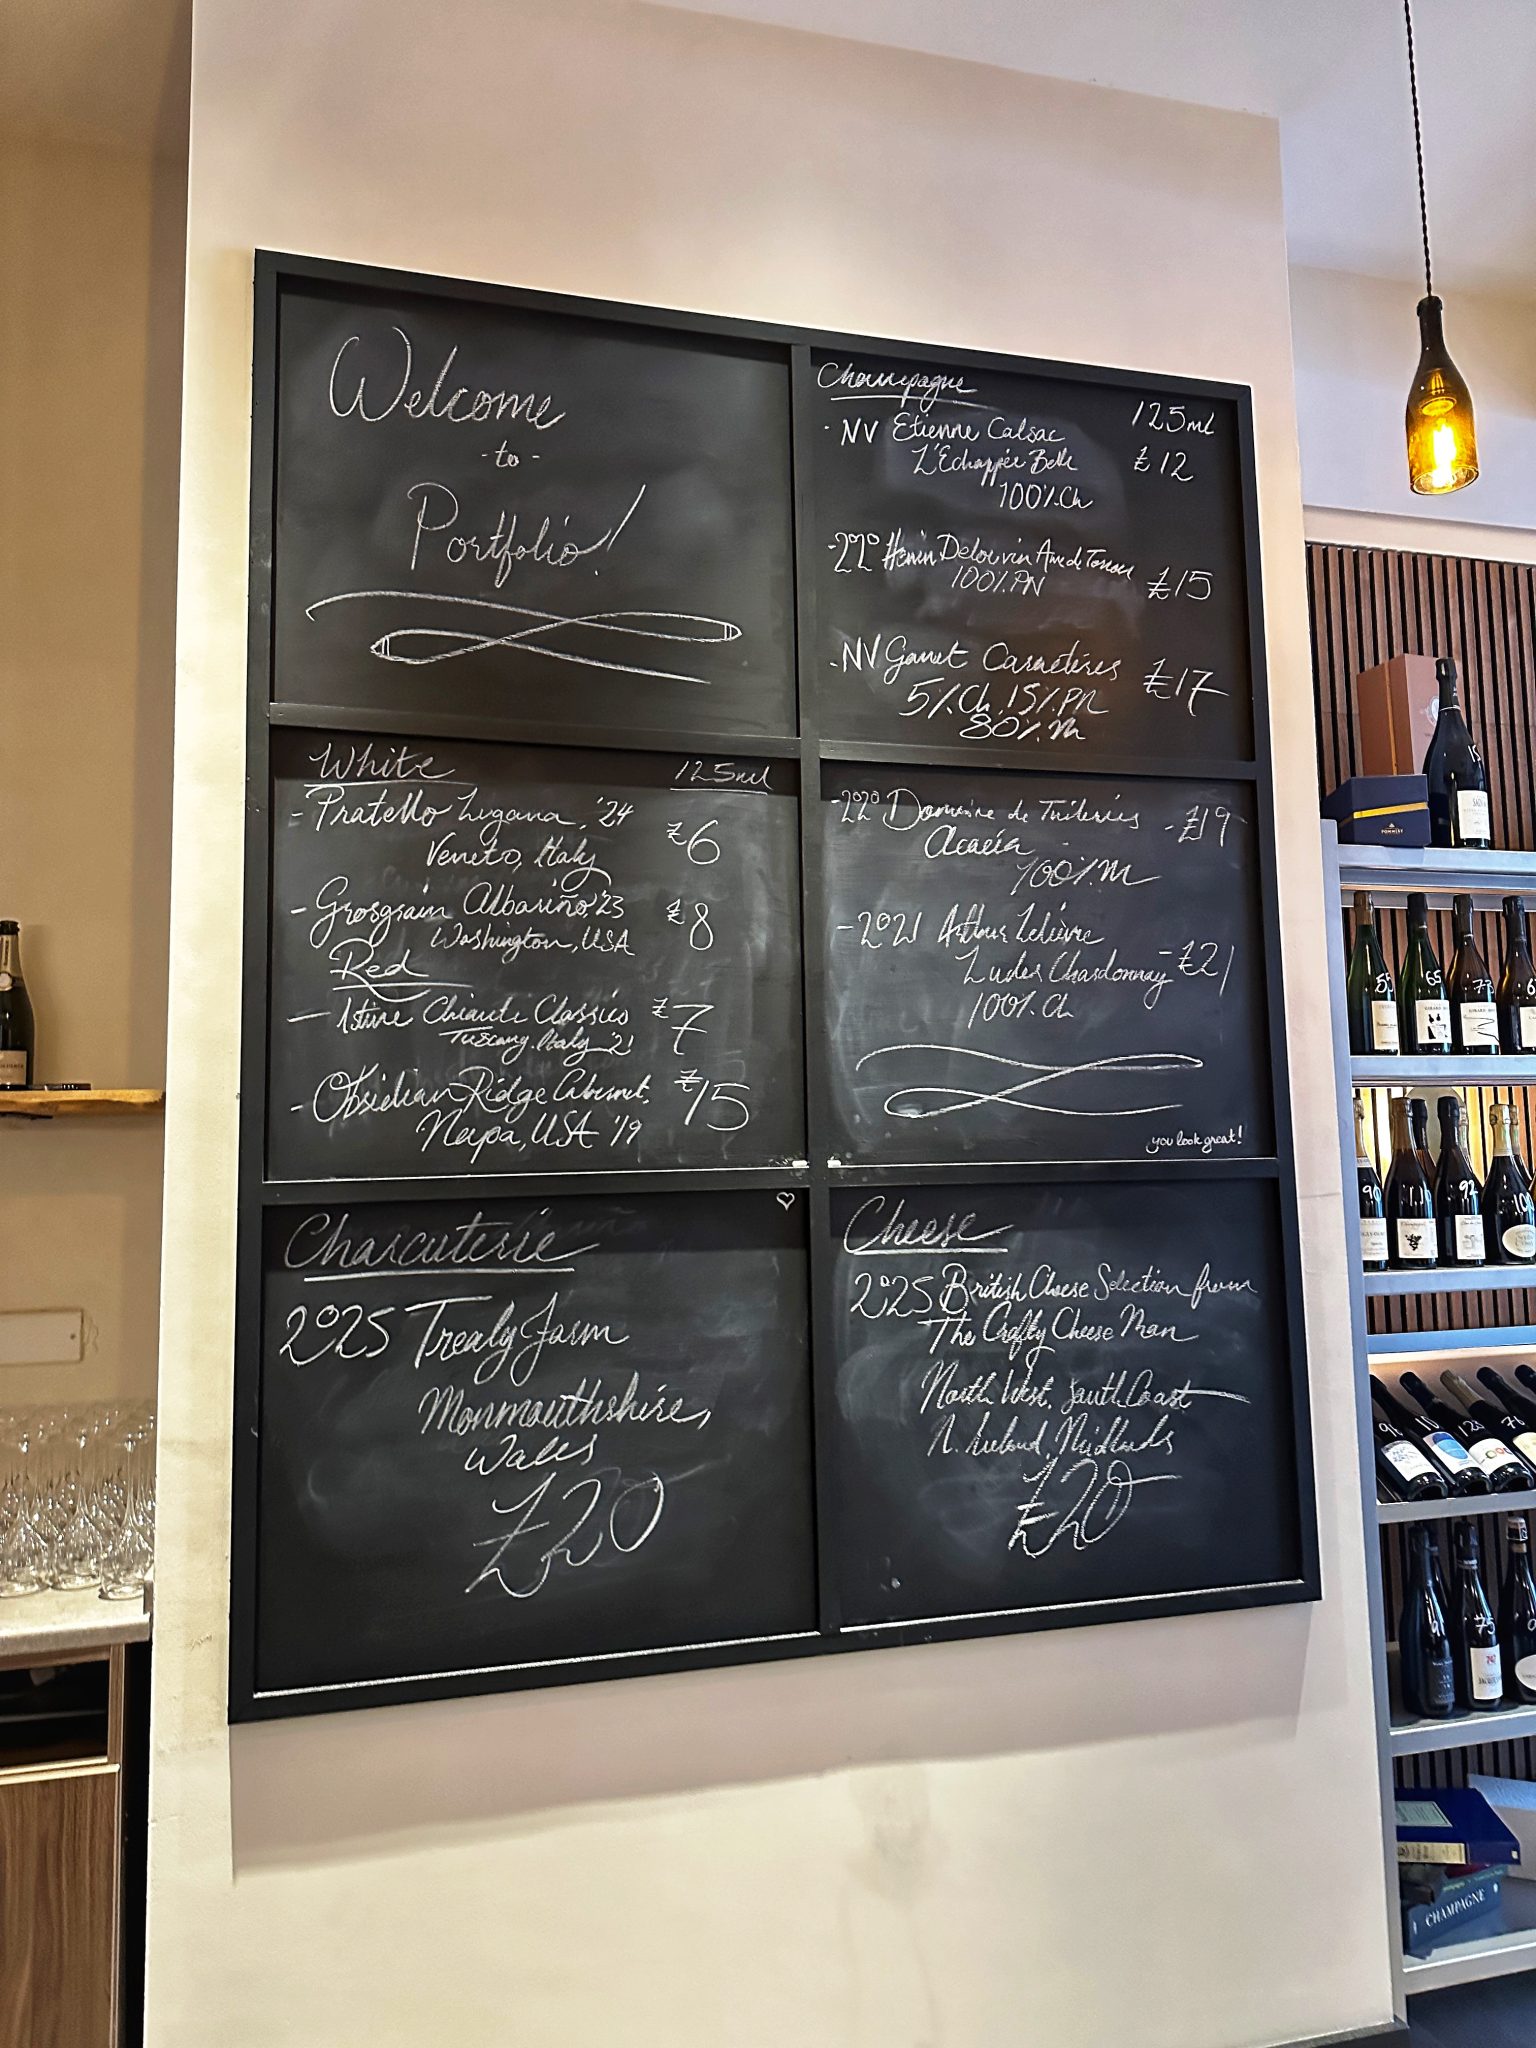 Welcome
- to -
Portfolio!
Champagne
125ml
- NV Etienne Calsac
L'Echappée Belle
£12
100%.Ch
- 2020 Henin Delouvin
£15
100%.PN
- NV Gamet Caractères
£17
5%.Ch. 15%.PN
80%.M
White
125ml
- Pratello Lugana, '24
Veneto, Italy
£6
- Grosgrain Albariño, '23
Washington, USA
£8
Red
- Istine Chianti Classico
Tuscany, Italy '21
£7
- Obsidian Ridge Cabernet,
Napa, USA '19
£15
- 2020 Domaine de Tuileries
- £19
Acacia
100%.M
- 2021 Arthur Lefèvre
Ludes Chardonnay
- £21
100%.Ch
you look great!
♡
Charcuterie
2025 Trealy Farm
Monmouthshire,
Wales
£20
Cheese
2025 British Cheese Selection from
The Crafty Cheese Man
North West, South Coast
N. Ireland, Midlands
£20
POMMERY
15
55
65
73
6
90
110
92
100
10
120
76
91
75
CHAMPAGNE